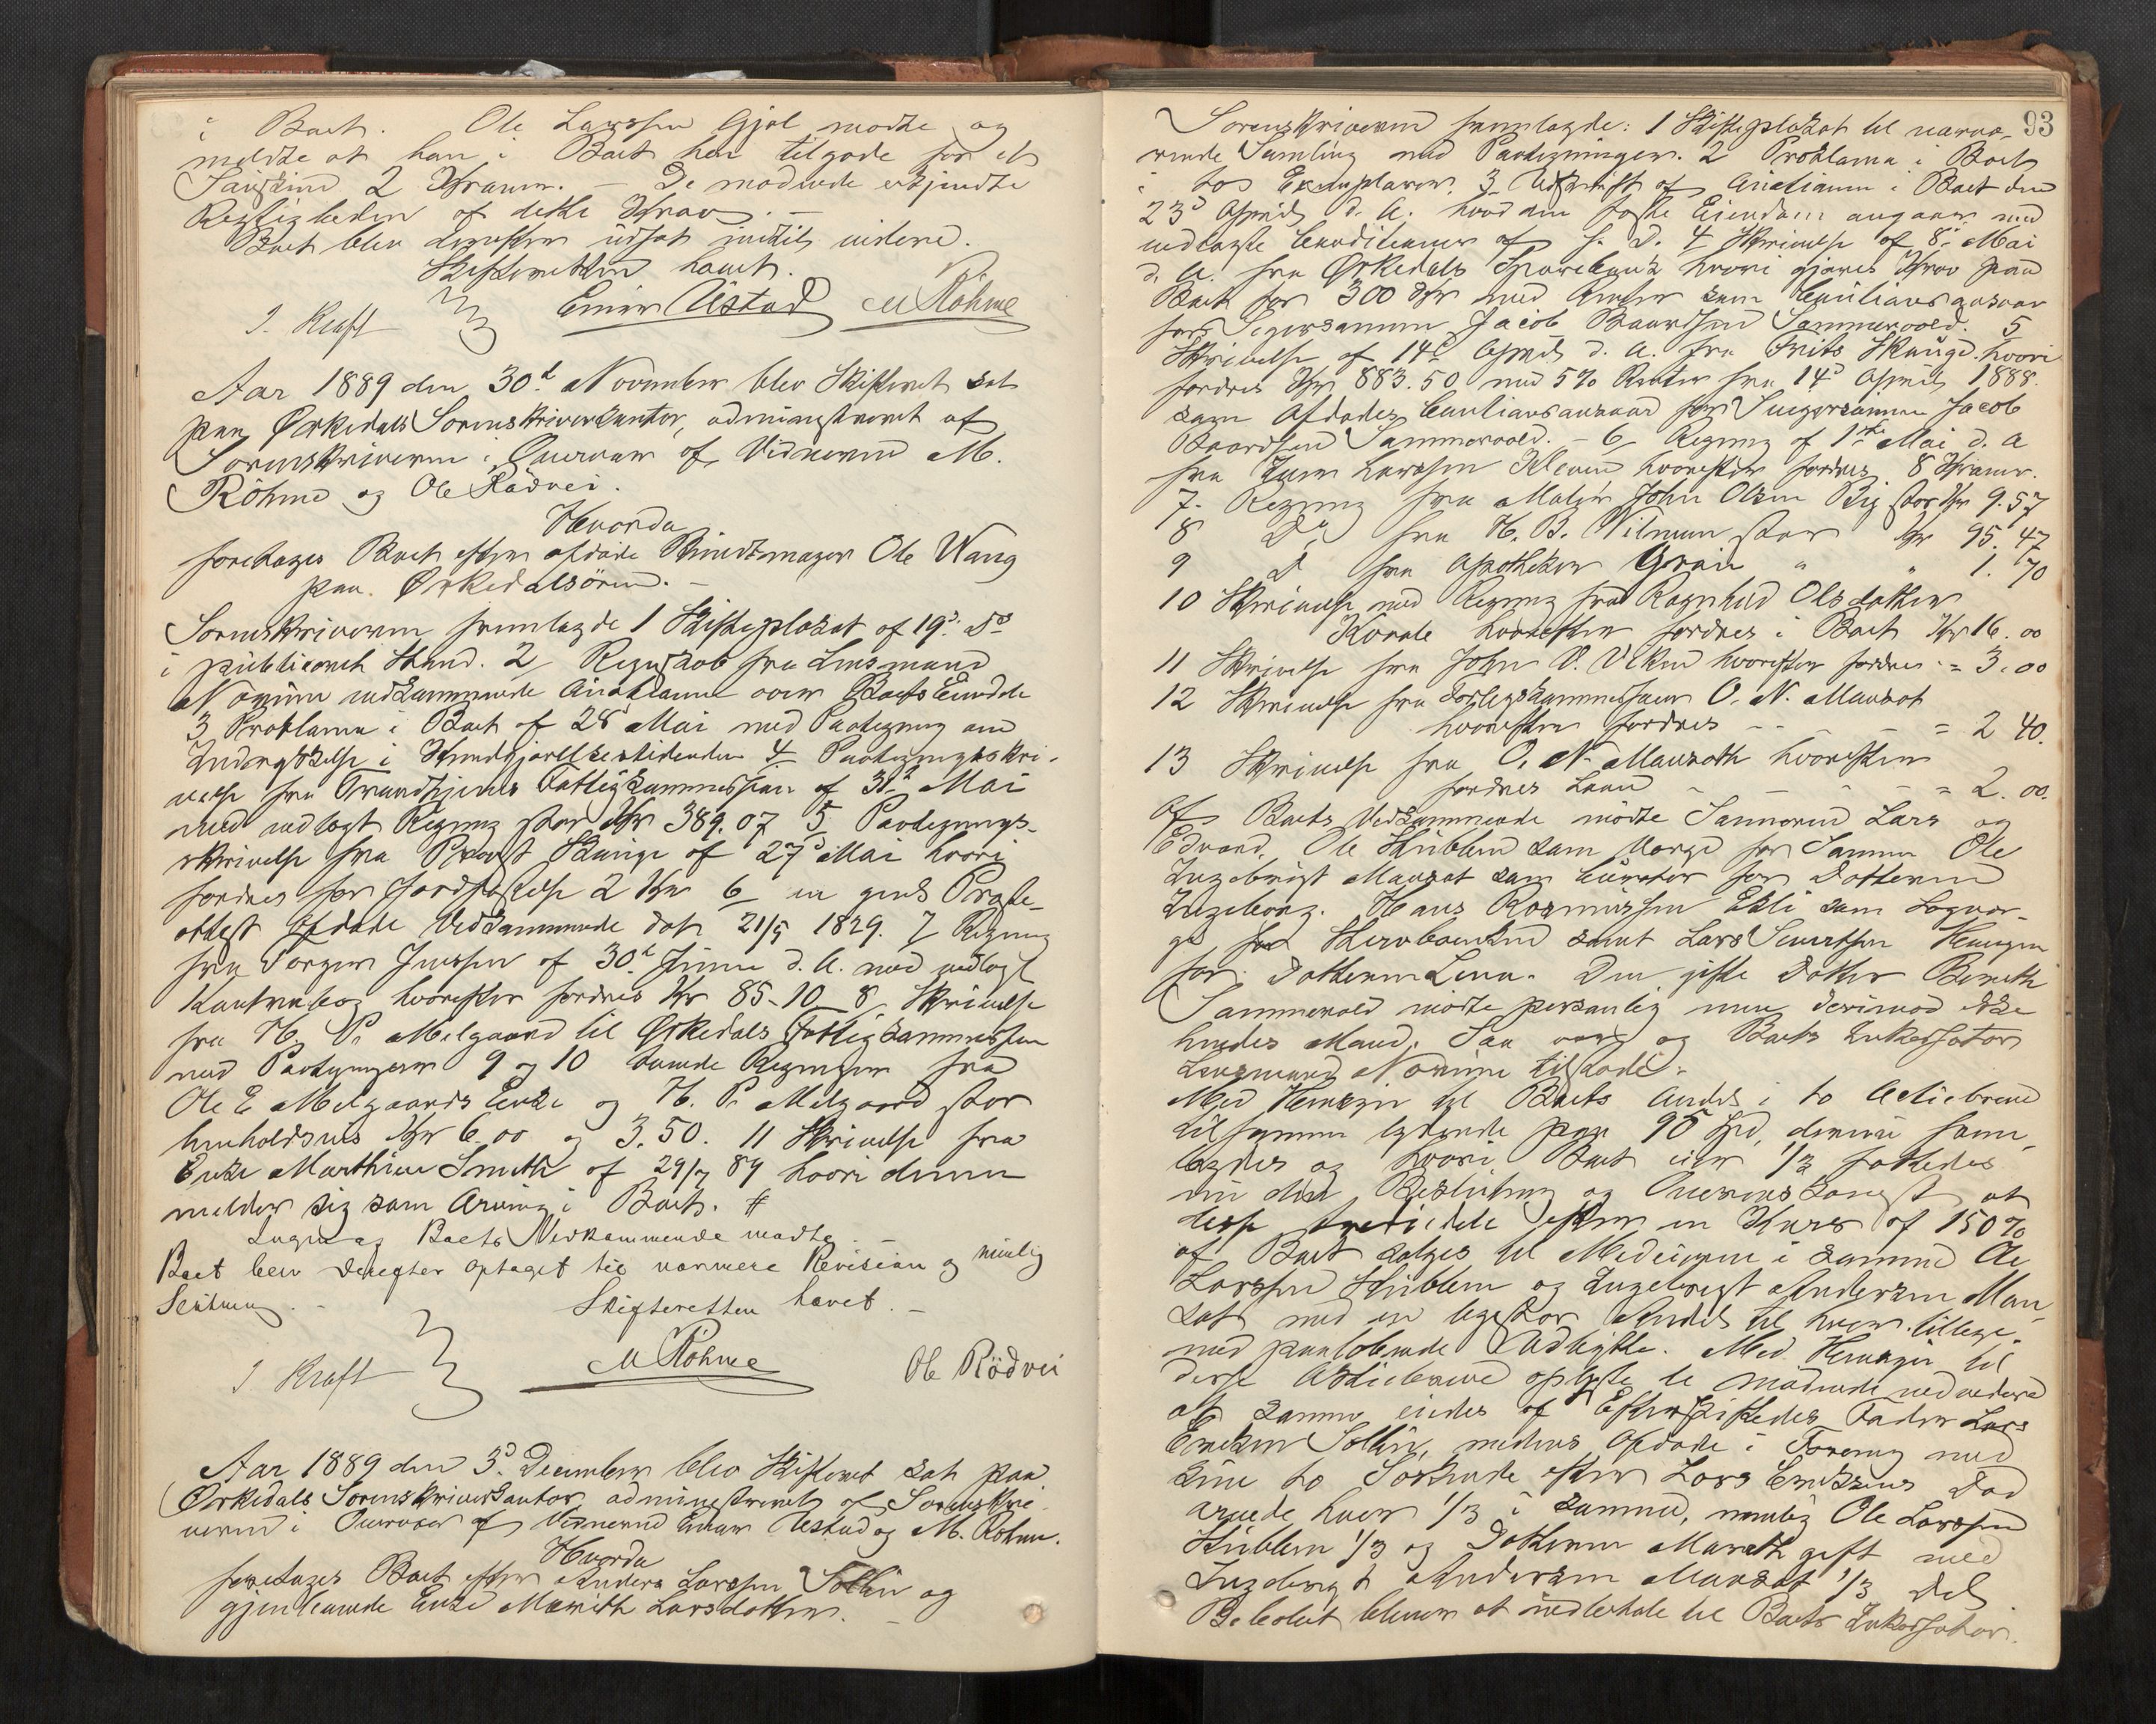 i Boet. Ole Larssen Gjøl mødte og
meldte at han i Boet har tilgode for et
Faarskind 2 Kroner. – De mødende erkjendte
Rigtigheden af dette Krav. –
Boet blev derefter udsat indtil videre.
Skifteretten hævet.
I. Kraft Einar Ustad M Röhme
Aar 1889 den 30te November blev Skifteret sat
paa Ørkedals Sorenskriverkontor, administreret af
Sorenskriveren i Overvær af Vidnerne M.
Röhme og Ole Rødvei.
Hvorda
foretages Boet efter afdøde Ole Wang
paa Ørkedalsøren. –
Sorenskriveren fremlagde 1 Skifteplakat af 19de ds
i publiceret Stand. 2 Regnskab fra Lensmand
Norum vedkommende Auktionen over Boets Eiendele
3 Proklama i Boet af 28 Mai med Paategning om
Indrykkelse i Kundgjørelsestidenden 4 Paategningsskri-
velse fra Trondhjems Fattigkommission af 31te Mai
med vedlagt Regning stor Kr 389.07 5 Paategnings-
skrivelse fra Provst Skunge af 27de Mai hvori
fordres for Jordfæstelse 2 Kr 6 en geml Præste-
attest Afdøde Vedkommende dat 21/5 1829. 7 Regning
fra Torger Jenssen af 30te Juni d. A. med vedlagt
Kontrabog hvorefter fordres Kr 85-10 8 Skrivelse
fra H. P. Melgaard til Ørkedals Fattigkommission
med Paategninger 9 og 10 Regninger fra
Ole E Melgaards Enke og H. P. Melgaard stor
henholdsvis Kr 6.00 og 3.50. 11 Skrivelse fra
Enke Marthine Smith af 29/7 89 hvori denne
melder sig som Arving i Boet. #
Ingen af Boets Vedkommende mødte. –
Boet blev derefter optaget til nærmere Revision og mulig
Slutning. – Skifteretten hævet. –
I. Kraft M Röhme Ole Rödvei
Aar 1889 den 3de December blev Skifteret sat paa
Ørkedals Sorenskriverkontor, administreret af Sorenskri-
veren i Overvær af Vidnerne Einar Ustad og M. Röhme.
Hvorda
foretages Boet efter Anders Larssen Solliin og
gjenlevende Enke Marith Larsdatter. –
93
Sorenskriveren fremlagde: 1 Skifteplakat til nærvæ-
rende Samling med Paategninger. 2 Proklama i Boet
i to Exemplarer. 3 Udskrift af Auctionen i Boet den
23de April d. A. hvad den faste Eiendom angaar med
vedlagte Conditioner af s. D. 4 Skrivelse af 8de Mai
d. A. fra Ørkedals Sparebank hvori gjøres Krav paa
Boet for 300 Kr med Renter som Cautionsansvar
for Svigersønnen Jacob Baardsen Sommervold. 5
Skrivelse af 14de April d. A. fra Frits Skauge hvori
fordres Kr 883.50 med 5% Renter fra 14de April 1888.
som Afdødes Cautionsansvar for Svigersønnen Jacob
Baardsen Sommervold. – 6 Regning af 1ste Mai d. A
fra Larssen Kleven hvorefter fordres 8 Kroner.
7. Regning fra Maler John Olsen Big stor Kr 9.57
8 Do fra H. B. Nilmun stor Kr 95.47
9 D fra Apotheker Gram " " 1.70
10 Skrivelse med Regning fra Ragnhild Olsdatter
hvorefter fordres i Boet Kr 16.00
11 Skrivelse fra John hvorefter fordres - = 3.00
12 Skrivelse fra Forligskommissær O. N. Manzot
hvorefter fordres - - - = 2 40.
13 Skrivelse fra O. N. Manzoth hvorefter
fordres Løn - - - - = 2.00.
Af Boets Vedkommende mødte Sønnerne Lars og
Edvard. Ole Hüblein som Værge for Sønnen Ole
Ingebrigt Manzot som Curator for Datteren
Ingeborg. Hans Rasmussen Ekli som Lagvær-
ge for samt Lars Sivertsen
for Datteren Lina. Den gifte Datter Berith
Sommervold mødte personlig men derimod ikke
hendes Mand. Saa var og Boets Inkassator
Lensmand Norum tilstede. –
Med Hensyn til Boets Andel i to Actiebreve
tilsammen lydende paa 90 Spd, denne frem-
lagdes og hvori Boet eier 1/3 fattedes
nu den Beslutning og Overenskomst at
disse Trediedele efter en Kurs af 150%
af Boet sælges til Medeierne i samme Ole
Larssen Hüblein og Ingebrigt Andersen Man-
zot med en ligestor Andel til hver tillige-
med paaløbende Udbytte. Med Hensyn til
disse Actiebreve oplyste de mødende ved
at samme eiedes af Efterskiftedes Fader Lars
Erichsen Solliin, medens Afdøde i Forening med
sine to Søskende efter Lars Erichsens Død
arvede hver 1/3 i samme, nemlig Ole Larssen
Hüblein 1/3 og Datteren Marith gift med
Ingebrigt Andersen Manzot 1/3 Del
Besluttet blev at medbetale til Boets Inkassator.